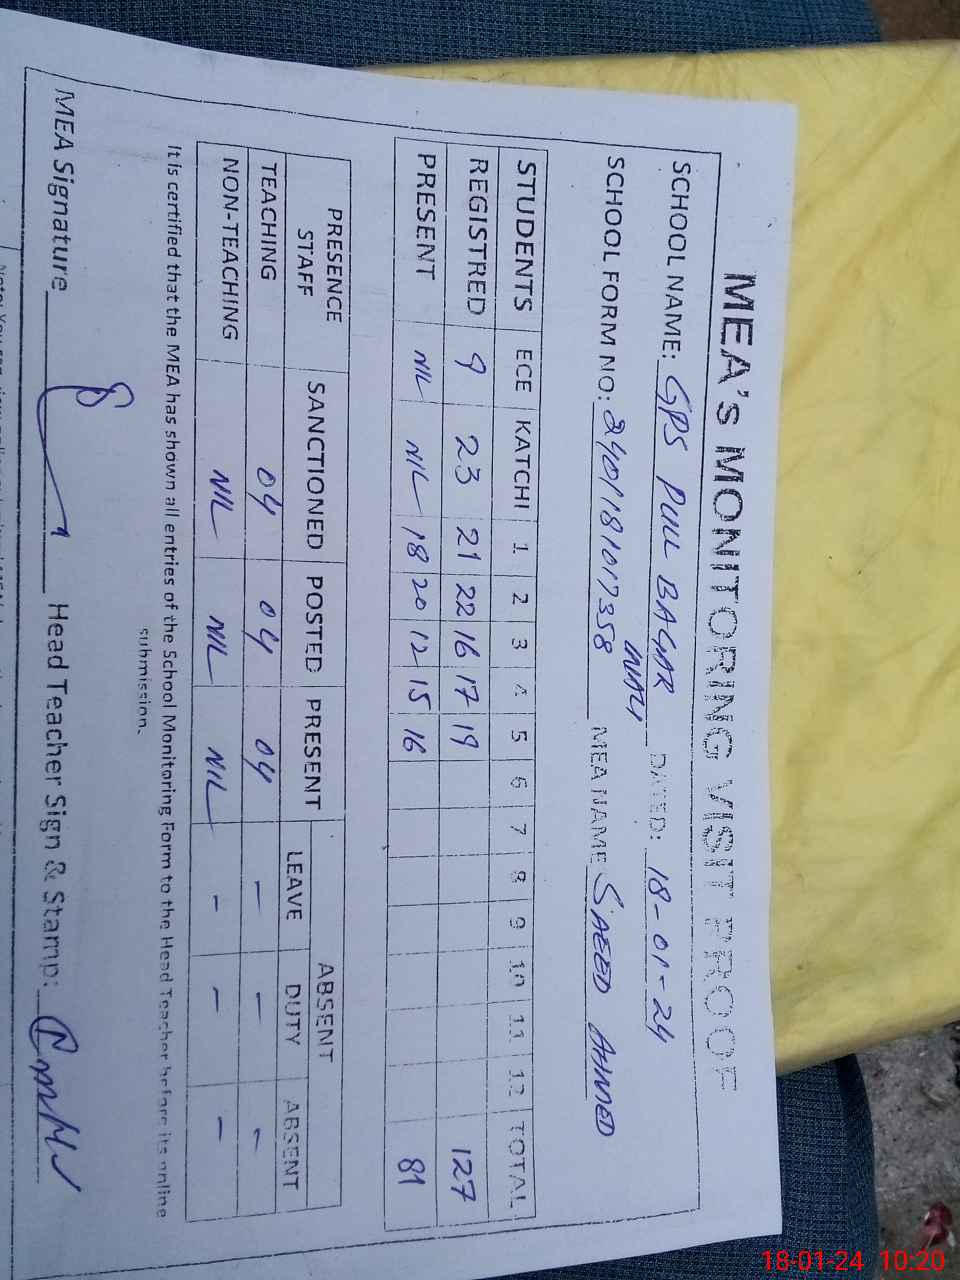 MEA's MONITORING VISIT PROOF
SCHOOL NAME: GPS PULL BAGAR WALI DATED: 18-01-24
SCHOOL FORM NO: 2401181017358 MEA NAME SAEED AHMED
STUDENTS ECE KATCHI 1 2 3 4 5 6 7 8 9 10 11 12 TOTAL
REGISTRED 9 23 21 22 16 17 19 127
PRESENT NIL NIL 18 20 12 15 16 81
PRESENCE STAFF SANCTIONED POSTED PRESENT ABSENT
LEAVE DUTY ABSENT
TEACHING 04 04 04 - - -
NON-TEACHING NIL NIL NIL - - -
It is certified that the MEA has shown all entries of the School Monitoring Form to the Head Teacher before its online
submission.
MEA Signature Head Teacher Sign & Stamp:
18-01-24 10:20